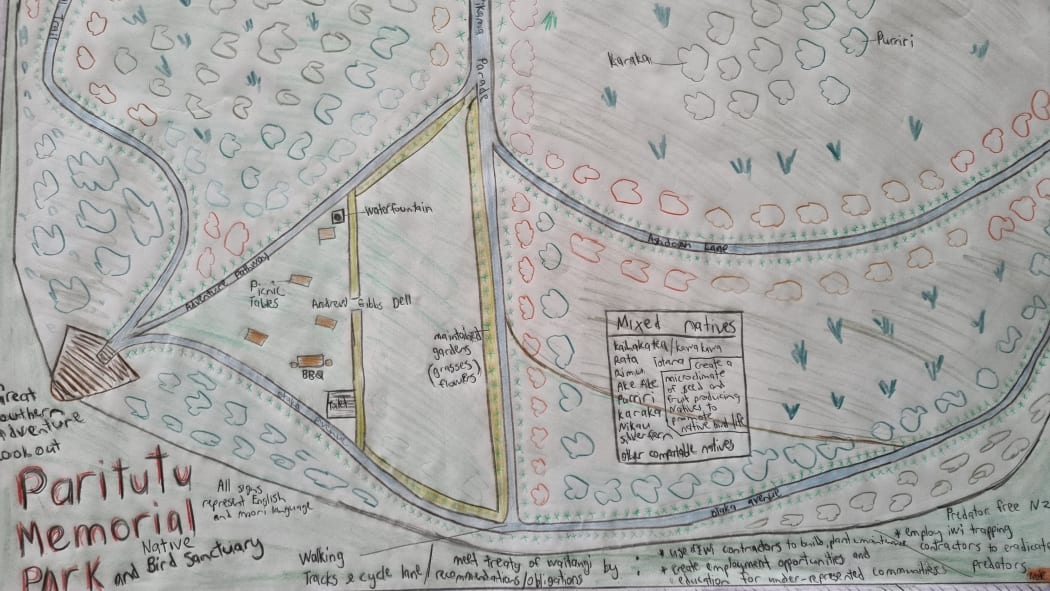 Trail
Parade
Karaka
Puriri
Water fountain
Ashdown Lane
Adventure Pathway
Picnic
Tables
Andrew Gibbs Dell
maintained
gardens
(grasses)
flowers
BBQ
Toilet
Avenue
Mixed natives
Kahakatea/kawakawa
Rata totara
Rimu
Ake Ake
Puriri
Karaka
Nikau
Silverfern
create a
microclimate
of seed and
fruit producing
natives to
promote
native bird life
other compatable natives
Otaka avenue
Great
Southern
Adventure
Look out
Paritutu
Memorial
Park and Native
Bird Sanctuary
All signs
represent English
and maori language
Walking
Tracks & cycle lane
meet treaty of waitangi
recommendations/obligations
by :
* use iwi contractors to build, plant, maintain
* create employment opportunities and
education for under-represented communities
Predator free NZ
* employ iwi trapping
contractors to eradicate
predators